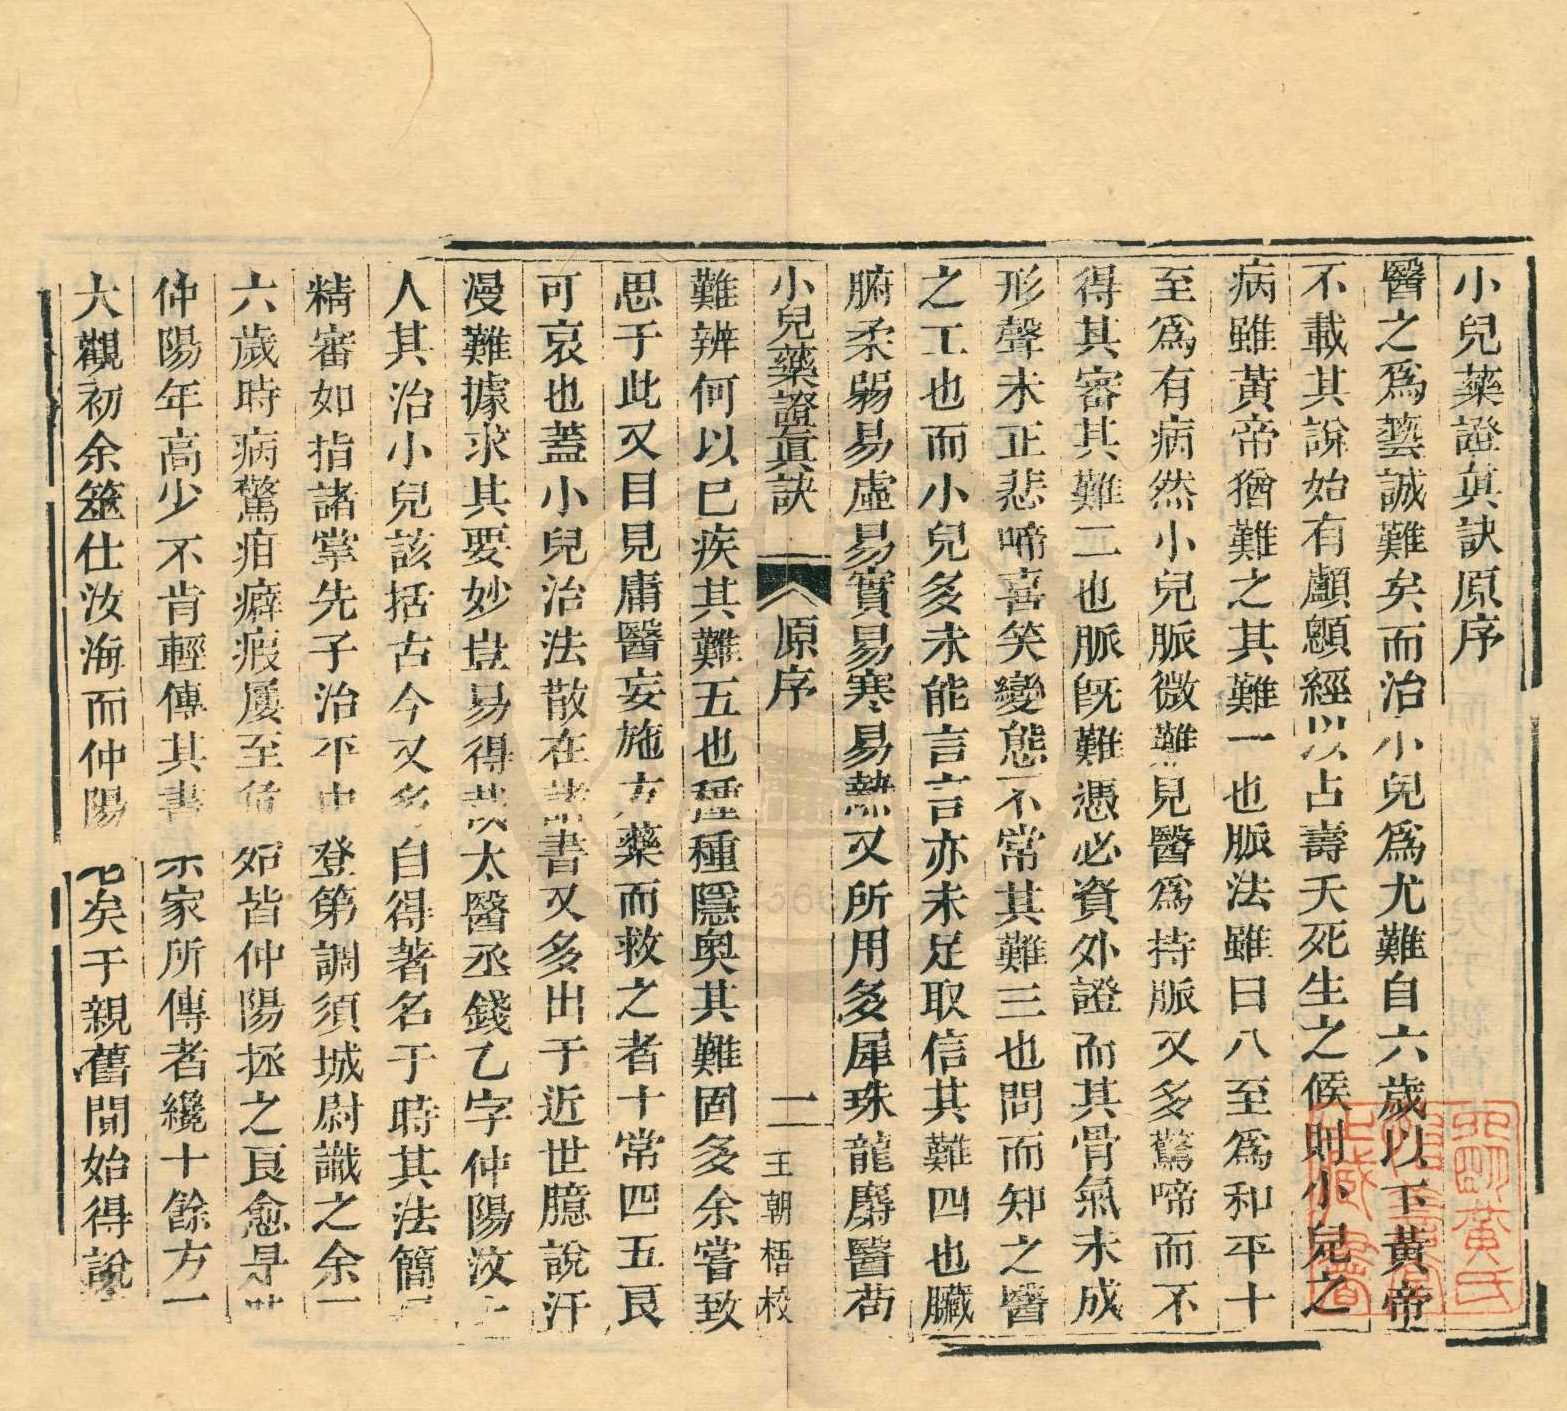 小兒藥證眞訣原序
醫之爲藝誠難矣而治小兒爲尤難自六歲以下黃帝
不載其說始有顱顖經以占壽夭死生之候則小兒之
病雖黃帝猶難之其難一也脈法雖曰八至爲和平十
至爲有病然小兒脈微難見醫爲持脈又多驚啼而不
得其審其難二也脈旣難憑必資外證而其骨氣未成
形聲未正悲啼喜笑變態不常其難三也問而知之醫
之工也而小兒多未能言言亦未足取信其難四也臟
腑柔弱易虛易實易寒易熱又所用多犀珠龍麝醫苟
小兒藥證眞訣 原序 二 王朝梧校
難辨何以已疾其難五也種種隱奧其難固多余嘗致
思于此又目見庸醫妄施方藥而救之者十常四五良
可哀也蓋小兒治法散在諸書又多出于近世臆說汗
漫難據求其要妙豈易得哉太醫丞錢乙字仲陽汶上
人其治小兒該括古今又多自得著名于時其法簡
精審如指諸掌先子治平中登第調須城尉識之余
六歲時病驚疳癖瘕屢至危殆皆仲陽拯之良愈是時
仲陽年高少不肯輕傳其書 家所傳者纔十餘方
大觀初余筮仕汝海而仲陽 矣于親舊間始得說